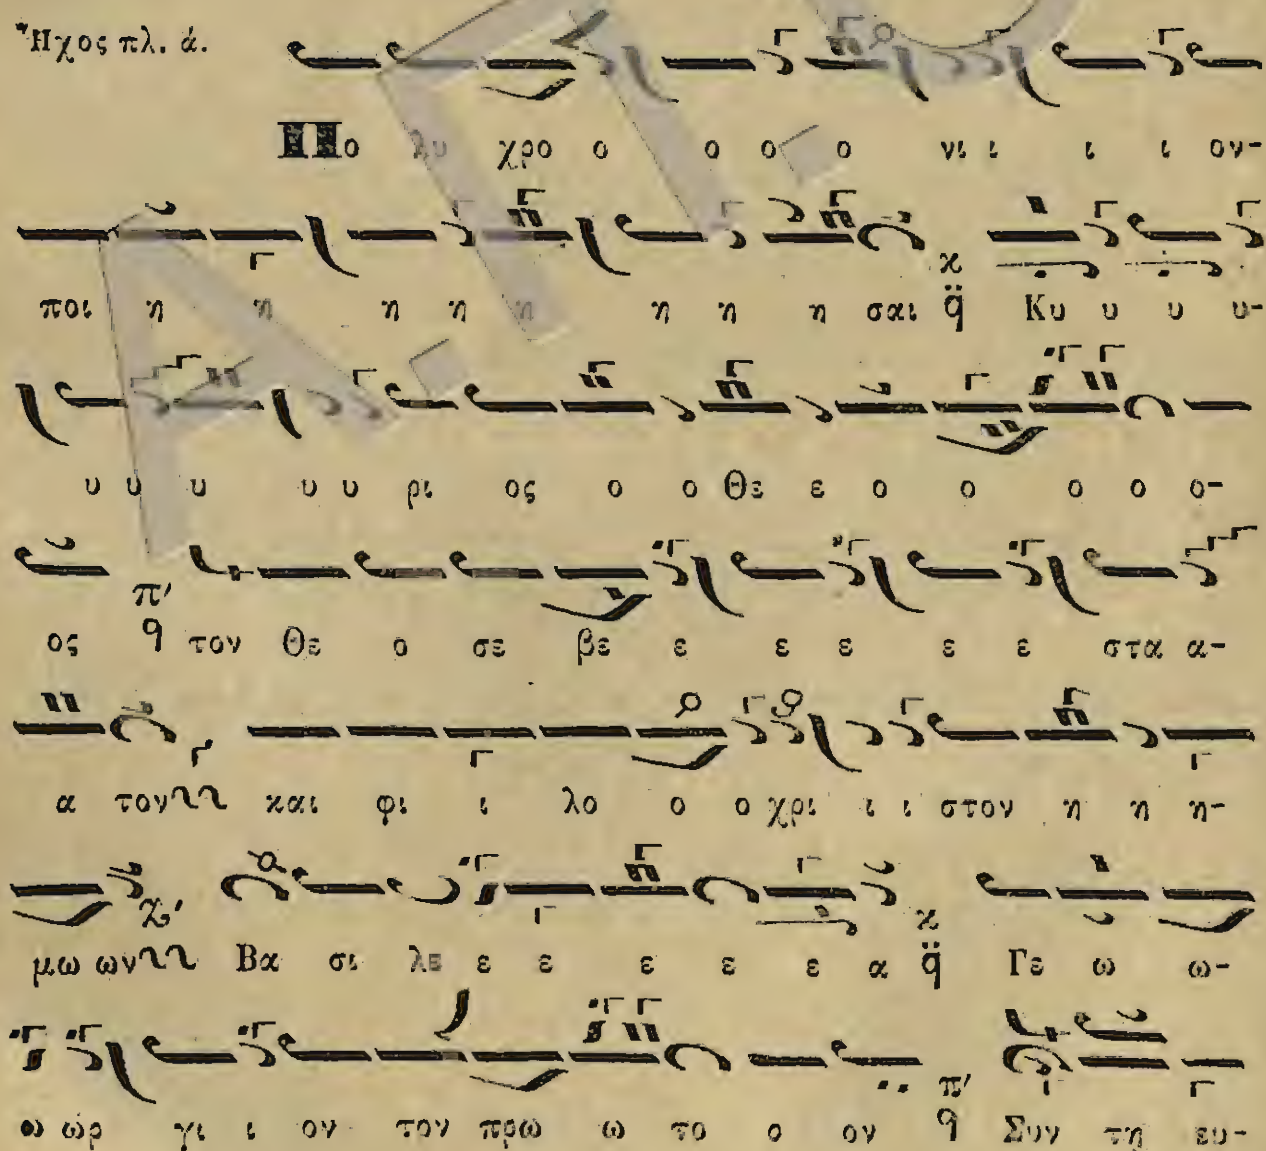 Ἦχος πλ. ά.
Πο λυ χρο ο ο ο ο νι ι ι ι ον-
ποι η η η η η η η η σαι ϗ q̈ Κυ υ υ υ-
υ υ υ υ υ ρι ος ο ο Θε ε ο ο ο ο ο-
ος π' q τον Θε ο σε βε ε ε ε ε ε στα α-
α τον και φι ι λο ο ο χρι ι ι στον η η η-
μω ων Βα σι λε ε ε ε ε ε α ϗ q̈ Γε ω ω-
ω ωρ γι ι ον τον πρω ω το ο ον π' q Συν τη ευ-